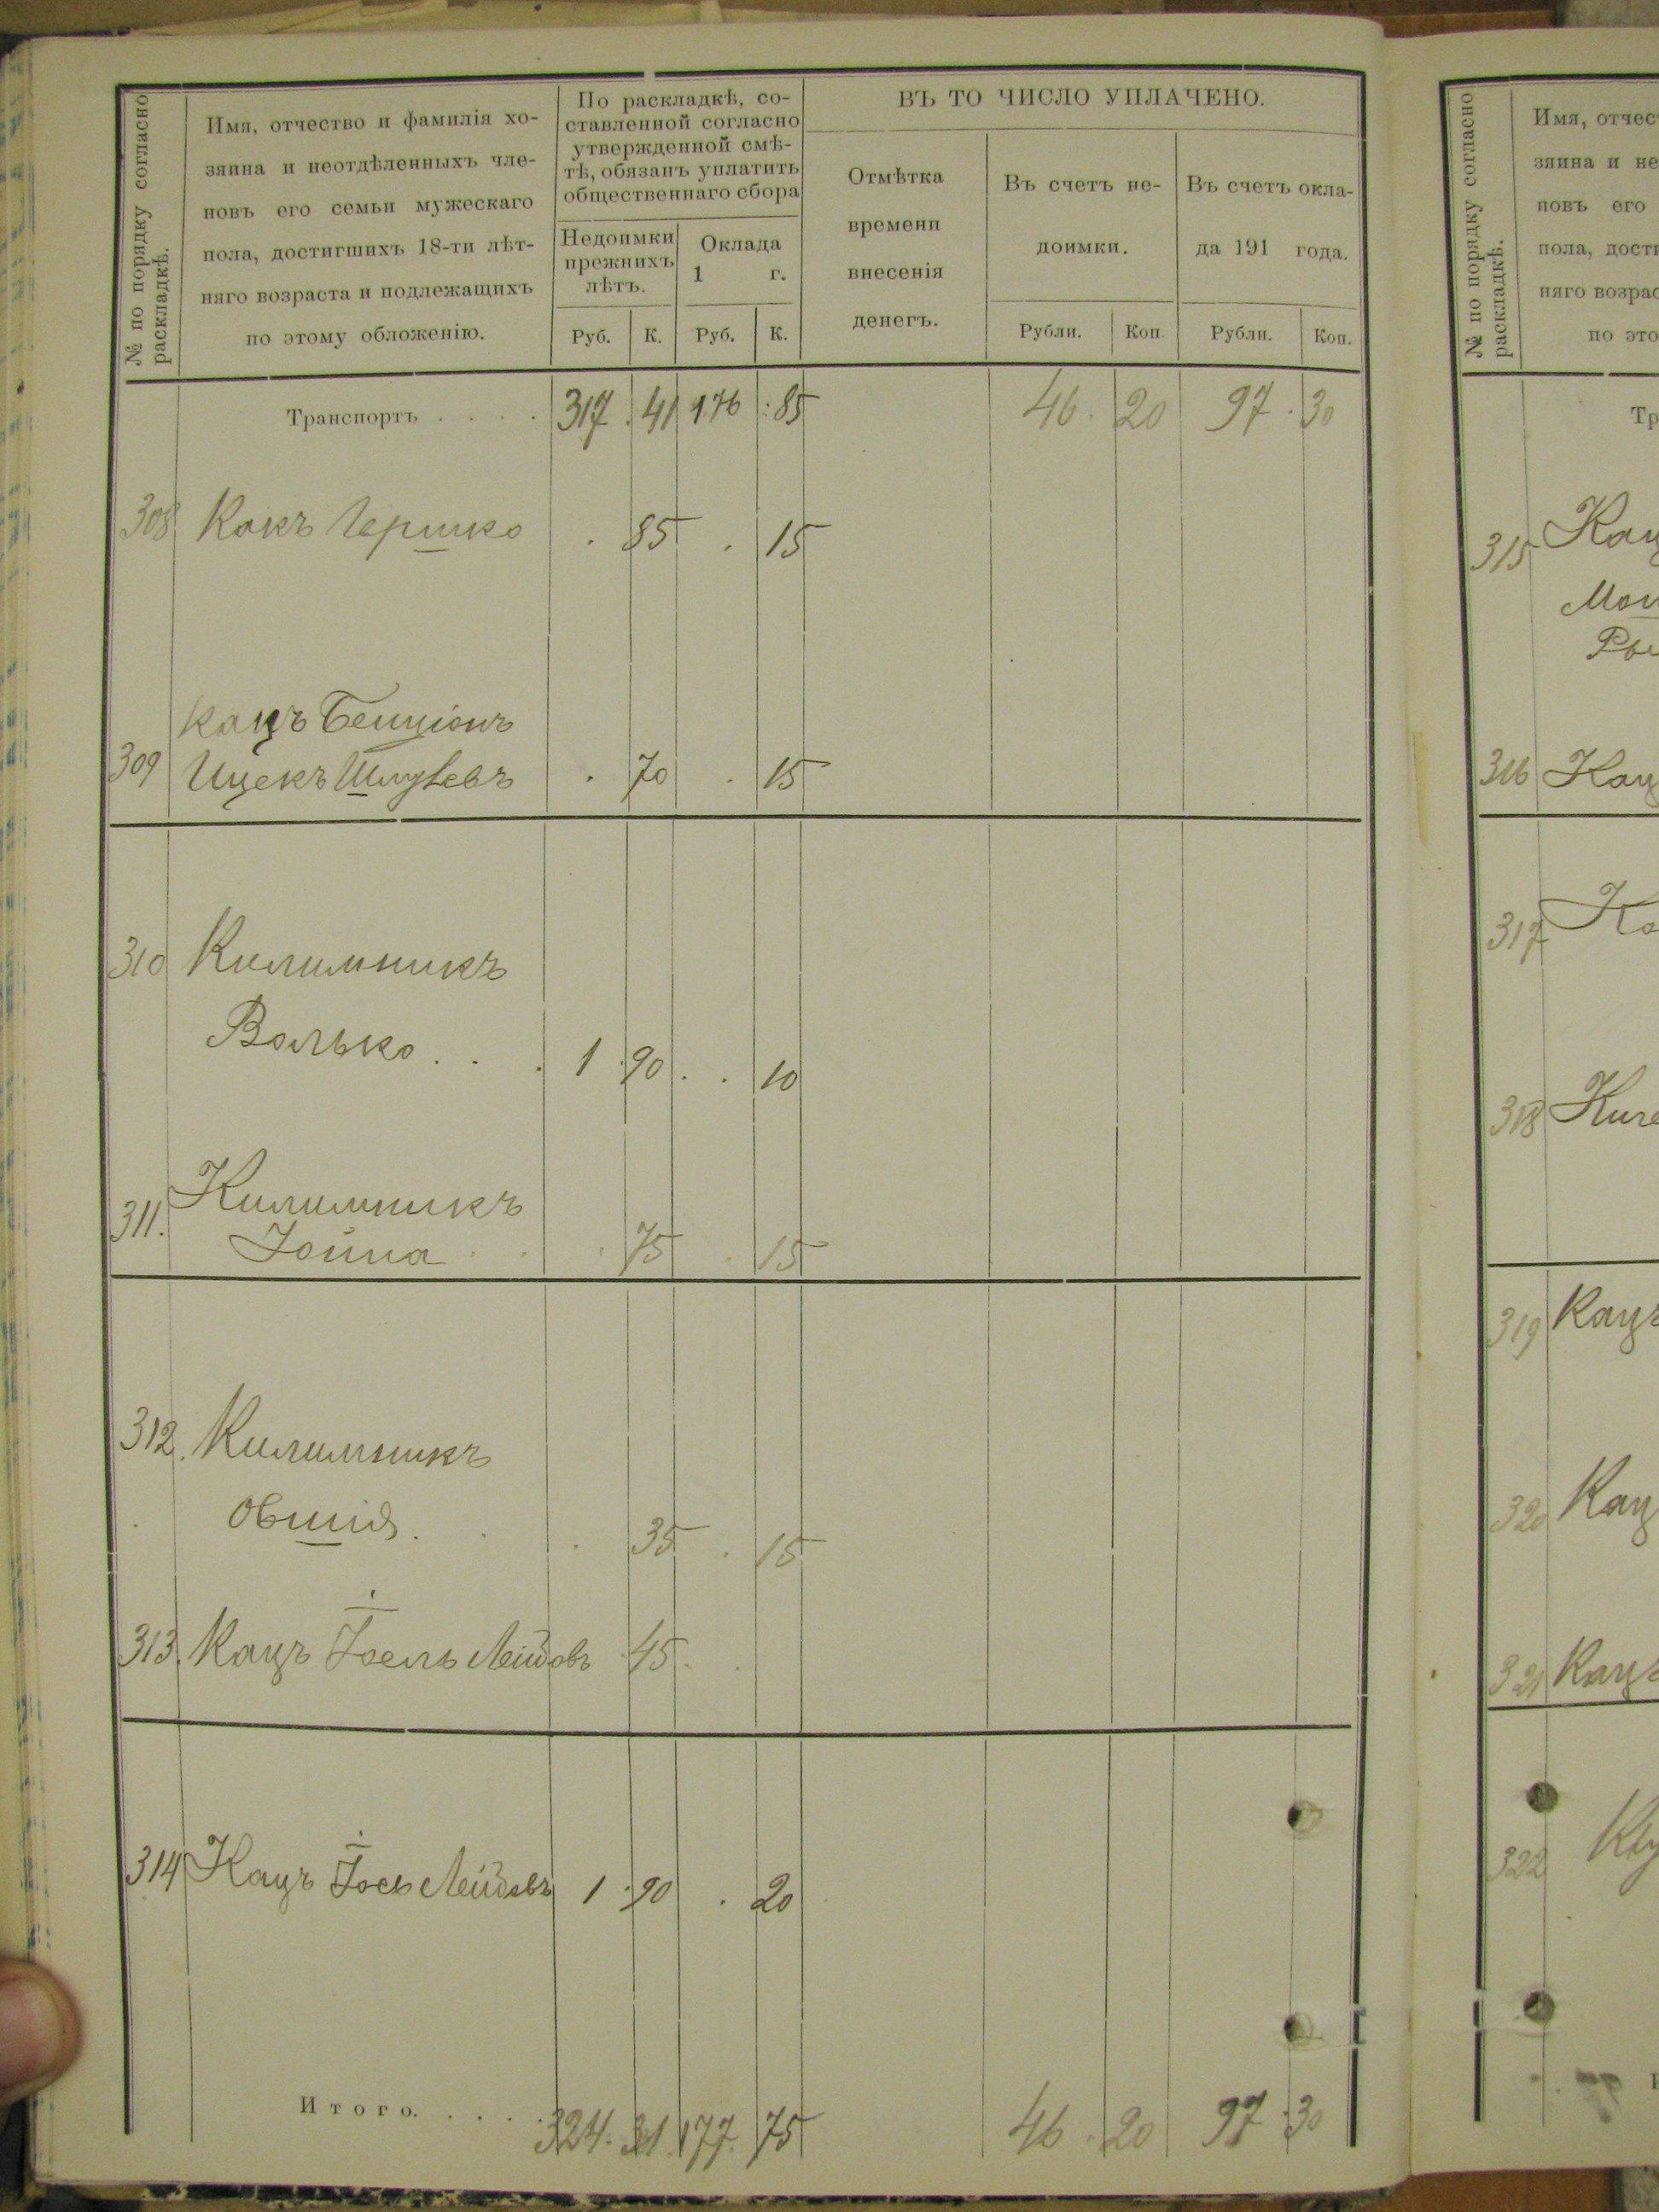 № по порядку согласно
раскладкѣ.
Имя, отчество и фамилія хо-
зяина и неотдѣленныхъ чле-
новъ его семьи мужескаго
пола, достигшихъ 18-ти лѣт-
няго возраста и подлежащихъ
по этому обложенію.
По раскладкѣ, со-
ставленной согласно
утвержденной смѣ-
тѣ, обязанъ уплатить
общественнаго сбора
Недоимки
прежнихъ
лѣтъ.
Оклада
1 г.
Руб. К. Руб. К.
ВЪ ТО ЧИСЛО УПЛАЧЕНО.
Отмѣтка
времени
внесенія
денегъ.
Въ счетъ не-
доимки.
Въ счетъ окла-
да 191 года.
Рубли. Коп. Рубли. Коп.
Транспортъ . . . . 317 . 41 176 : 85 46 . 20 97 . 30
308 Какъ Гершко . 85 . 15
Кацъ Бенціонъ
309 Ицекъ . 70 . 15
310 Килимникъ
Волько . . . 1 . 90 . . 10
311. Килимникъ
Іойна . . . 75 . 15
312. Килимникъ
Овшія . . . 35 . 15
313. Кацъ Іоель Лейбовъ 45 . .
314 Кацъ Іось Лейбовъ 1 . 90 . 20
Итого. . . . . 324. 31. 177. 75 46 . 20 97 . 30
№ по порядку согласно
раскладкѣ.
Имя, отчес
зяина и не
новъ его
пола, дости
няго возрас
по это
Тр
315 Кац
316 Кац
317 Ка
318
319 Кацъ
320 Кац
321 Кацъ
322